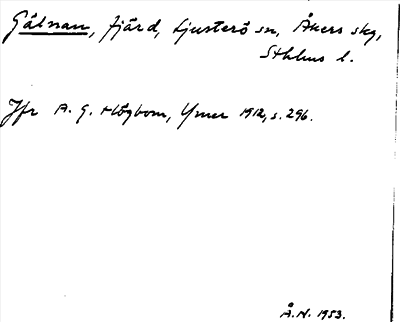 Gälnan, fjärd, Ljusterö sn, Åkers skg,
Sthlms l.
Jfr A. G. Högbom, Ymer 1912, s. 296.
Å.N. 1953.